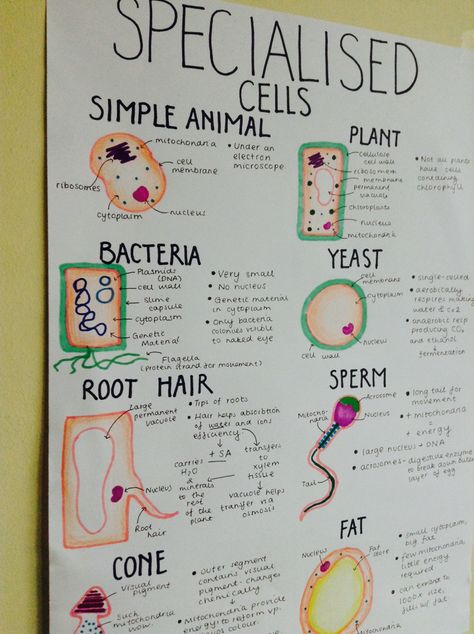 SPECIALISED
CELLS
SIMPLE ANIMAL
mitochondria
cell
membrane
ribosomes
cytoplasm
nucleus
• Under an
electron
microscope.
PLANT
cellulose
cell wall
ribosomes
membrane
permanent
vacuole
chloroplasts
nucleus
mitochondria
• Not all plants
have cells
containing
chlorophyll
BACTERIA
Plasmids
(DNA)
cell wall
Slime
capsule
cytoplasm
Genetic
Material
Flagella
(protein strand for movement)
• Very small
• No nucleus
• Genetic material
in cytoplasm
• Only bacteria
colonies visible
to naked eye
YEAST
cell
membrane
cytoplasm
nucleus
cell wall
• single-celled
• aerobically
respires making
water & CO2
• anaerobic resp
producing CO2
and ethanol
↓
fermentation
ROOT HAIR
Large
permanent
vacuole
Nucleus
Root
hair
• Tips of roots
• Hair helps absorption
of water and ions
efficiency
↑ SA
carries
H2O
&
minerals
to the
rest
of the
plant
transfers
to
xylem
tissue
vacuole helps
transfer via
osmosis
SPERM
Acrosome
Mitochondria
Nucleus
Tail
• long tail for
movement
• ↑ mitochondria
=
↑ energy
• large nucleus → DNA
• acrosomes - digestive enzymes
to break down outer
layer of egg
CONE
Visual
pigment
Such
mitochondria
wow.
• Outer segment
contains visual
pigment - changes
chemically
• Mitochondria provide
energy to reform vp.
colour.
FAT
Nucleus
Fat
store
Mitochondria
• small cytoplasm,
big fat
• few mitochondria
little energy
required
• can expand to
1000x size,
fills w/ fat